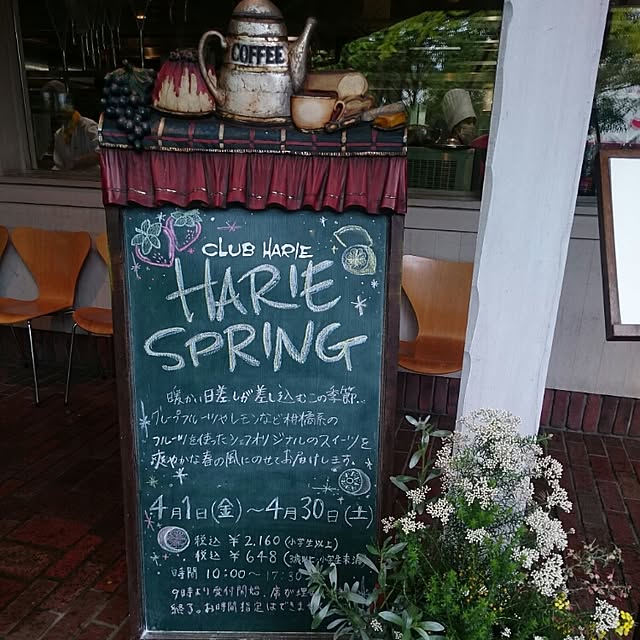 COFFEE
CLUB HARIE
HARIE
SPRING
暖かい日差しが差し込むこの季節..
グレープフルーツやレモンなど柑橘系の
フルーツを使ったシェフオリジナルのスイーツを
爽やかな春の風にのせてお届けします。
4月1日(金)～4月30日(土)
税込 ¥2,160(小学生以上)
税込 ¥648(3歳以上小学生未満
時間 10:00～17:30
9時より受付開始、席が埋
終了。お時間指定はできま